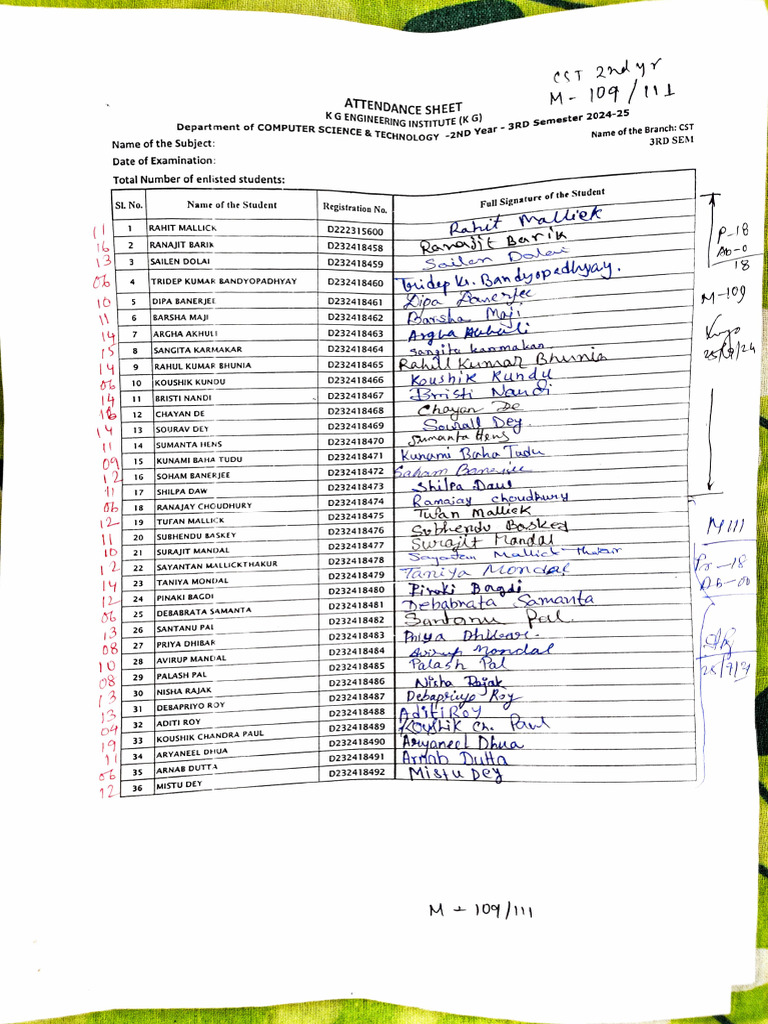 CST 2nd yr
M - 109/111
ATTENDANCE SHEET
K G ENGINEERING INSTITUTE (K G)
Department of COMPUTER SCIENCE & TECHNOLOGY -2ND Year - 3RD Semester 2024-25
Name of the Subject: Name of the Branch: CST
3RD SEM
Date of Examination:
Total Number of enlisted students:
Sl. No. Name of the Student Registration No. Full Signature of the Student
11 1 RAHIT MALLICK D222315600 Rahit Mallick
16 2 RANAJIT BARIK D232418458 Ranajit Barik
13 3 SAILEN DOLAI D232418459 Sailen Dolai
06 4 TRIDEP KUMAR BANDYOPADHYAY D232418460 Tridep Kr. Bandyopadhyay.
10 5 DIPA BANERJEE D232418461 Dipa Banerjee
11 6 BARSHA MAJI D232418462 Barsha Maji
14 7 ARGHA AKHULI D232418463 Argha Akhuli
15 8 SANGITA KARMAKAR D232418464 Sangita Karmakar
14 9 RAHUL KUMAR BHUNIA D232418465 Rahul Kumar Bhunia
06 10 KOUSHIK KUNDU D232418466 Koushik Kundu
14 11 BRISTI NANDI D232418467 Bristi Nandi
16 12 CHAYAN DE D232418468 Chayan De
14 13 SOURAV DEY D232418469 Sourav Dey.
11 14 SUMANTA HENS D232418470 Sumanta Hens
09 15 KUNAMI BAHA TUDU D232418471 Kunami Baha Tudu
12 16 SOHAM BANERJEE D232418472 Soham Banerjee
11 17 SHILPA DAW D232418473 Shilpa Daw
06 18 RANAJAY CHOUDHURY D232418474 Ranajay Choudhury
12 19 TUFAN MALLICK D232418475 Tufan Mallick
11 20 SUBHENDU BASKEY D232418476 Subhendu Baskey
10 21 SURAJIT MANDAL D232418477 Surajit Mandal
12 22 SAYANTAN MALLICKTHAKUR D232418478 Sayantan Mallick Thakur
14 23 TANIYA MONDAL D232418479 Taniya Mondal
12 24 PINAKI BAGDI D232418480 Pinaki Bagdi
06 25 DEBABRATA SAMANTA D232418481 Debabrata Samanta
13 26 SANTANU PAL D232418482 Santanu Pal.
08 27 PRIYA DHIBAR D232418483 Priya Dhibar.
10 28 AVIRUP MANDAL D232418484 Avirup Mondal
08 29 PALASH PAL D232418485 Palash Pal
13 30 NISHA RAJAK D232418486 Nisha Rajak
13 31 DEBAPRIYO ROY D232418487 Debapriyo Roy
09 32 ADITI ROY D232418488 Aditi Roy
19 33 KOUSHIK CHANDRA PAUL D232418489 Koushik Ch. Paul
11 34 ARYANEEL DHUA D232418490 Aryaneel Dhua
06 35 ARNAB DUTTA D232418491 Arnab Dutta
12 36 MISTU DEY D232418492 Mistu Dey
P-18
Ab-0
18
M-109
25/9/24
M 111
Pr-18
Ab-00
M - 109/111